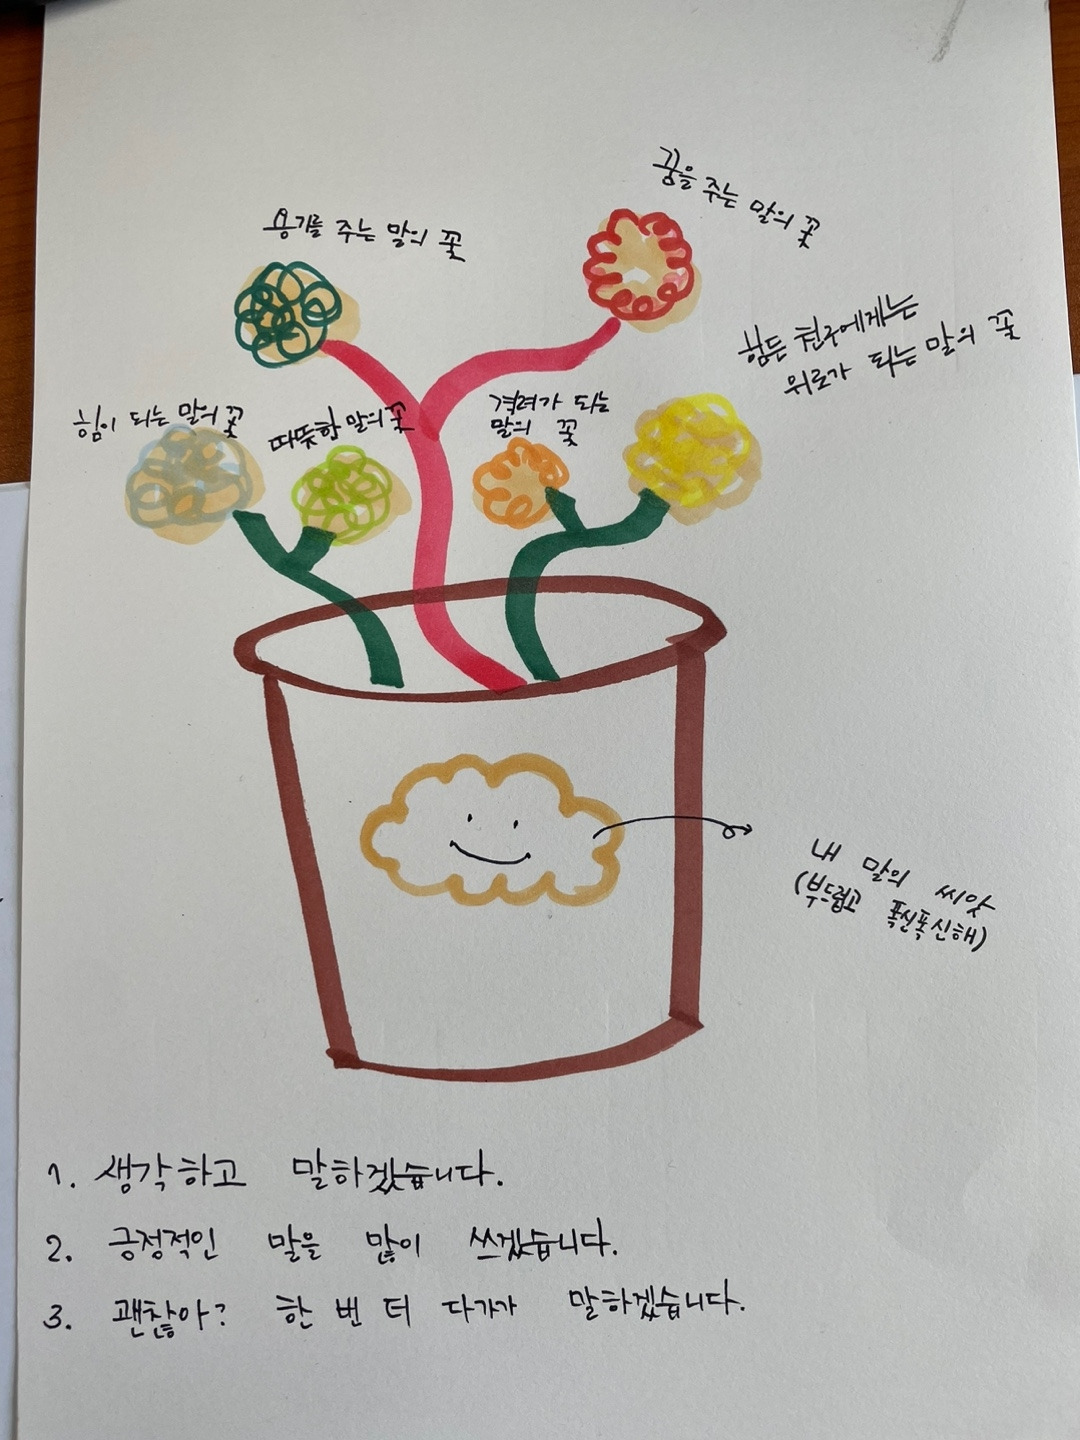 꿈을 주는 말의 꽃
용기를 주는 말의 꽃
힘든 친구에게는
위로가 되는 말의 꽃
격려가 되는
말의 꽃
힘이 되는 말의 꽃
따뜻한 말의 꽃
내 말의 씨앗
(부드럽고 폭신폭신해)
1. 생각하고 말하겠습니다.
2. 긍정적인 말을 많이 쓰겠습니다.
3. 괜찮아? 한 번 더 다가가 말하겠습니다.